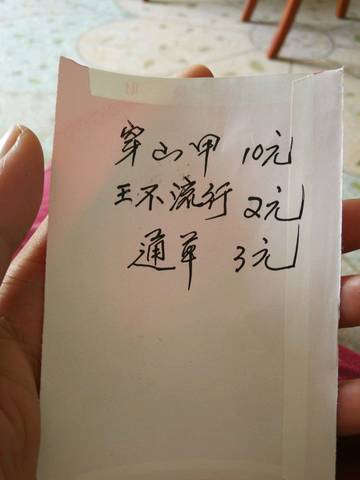 穿山甲 10元
王不流行 2元
通草 3元